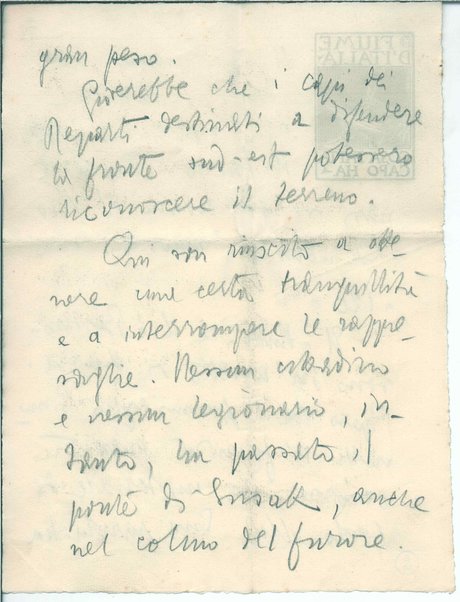 gran peso.
Gioverebbe che i capi dei
Reparti destinati a difendere
la fronte sud-est potessero
riconoscere il terreno.
Qui son riuscito a otte-
nere una certa tranquillità
e a interrompere le rappre-
saglie. Nessun cittadino
e nessun legionario, in-
tanto, ha passato il
ponte di Susak, anche
nel colmo del furore.
FIUME
D'ITALIA
CAPO HA